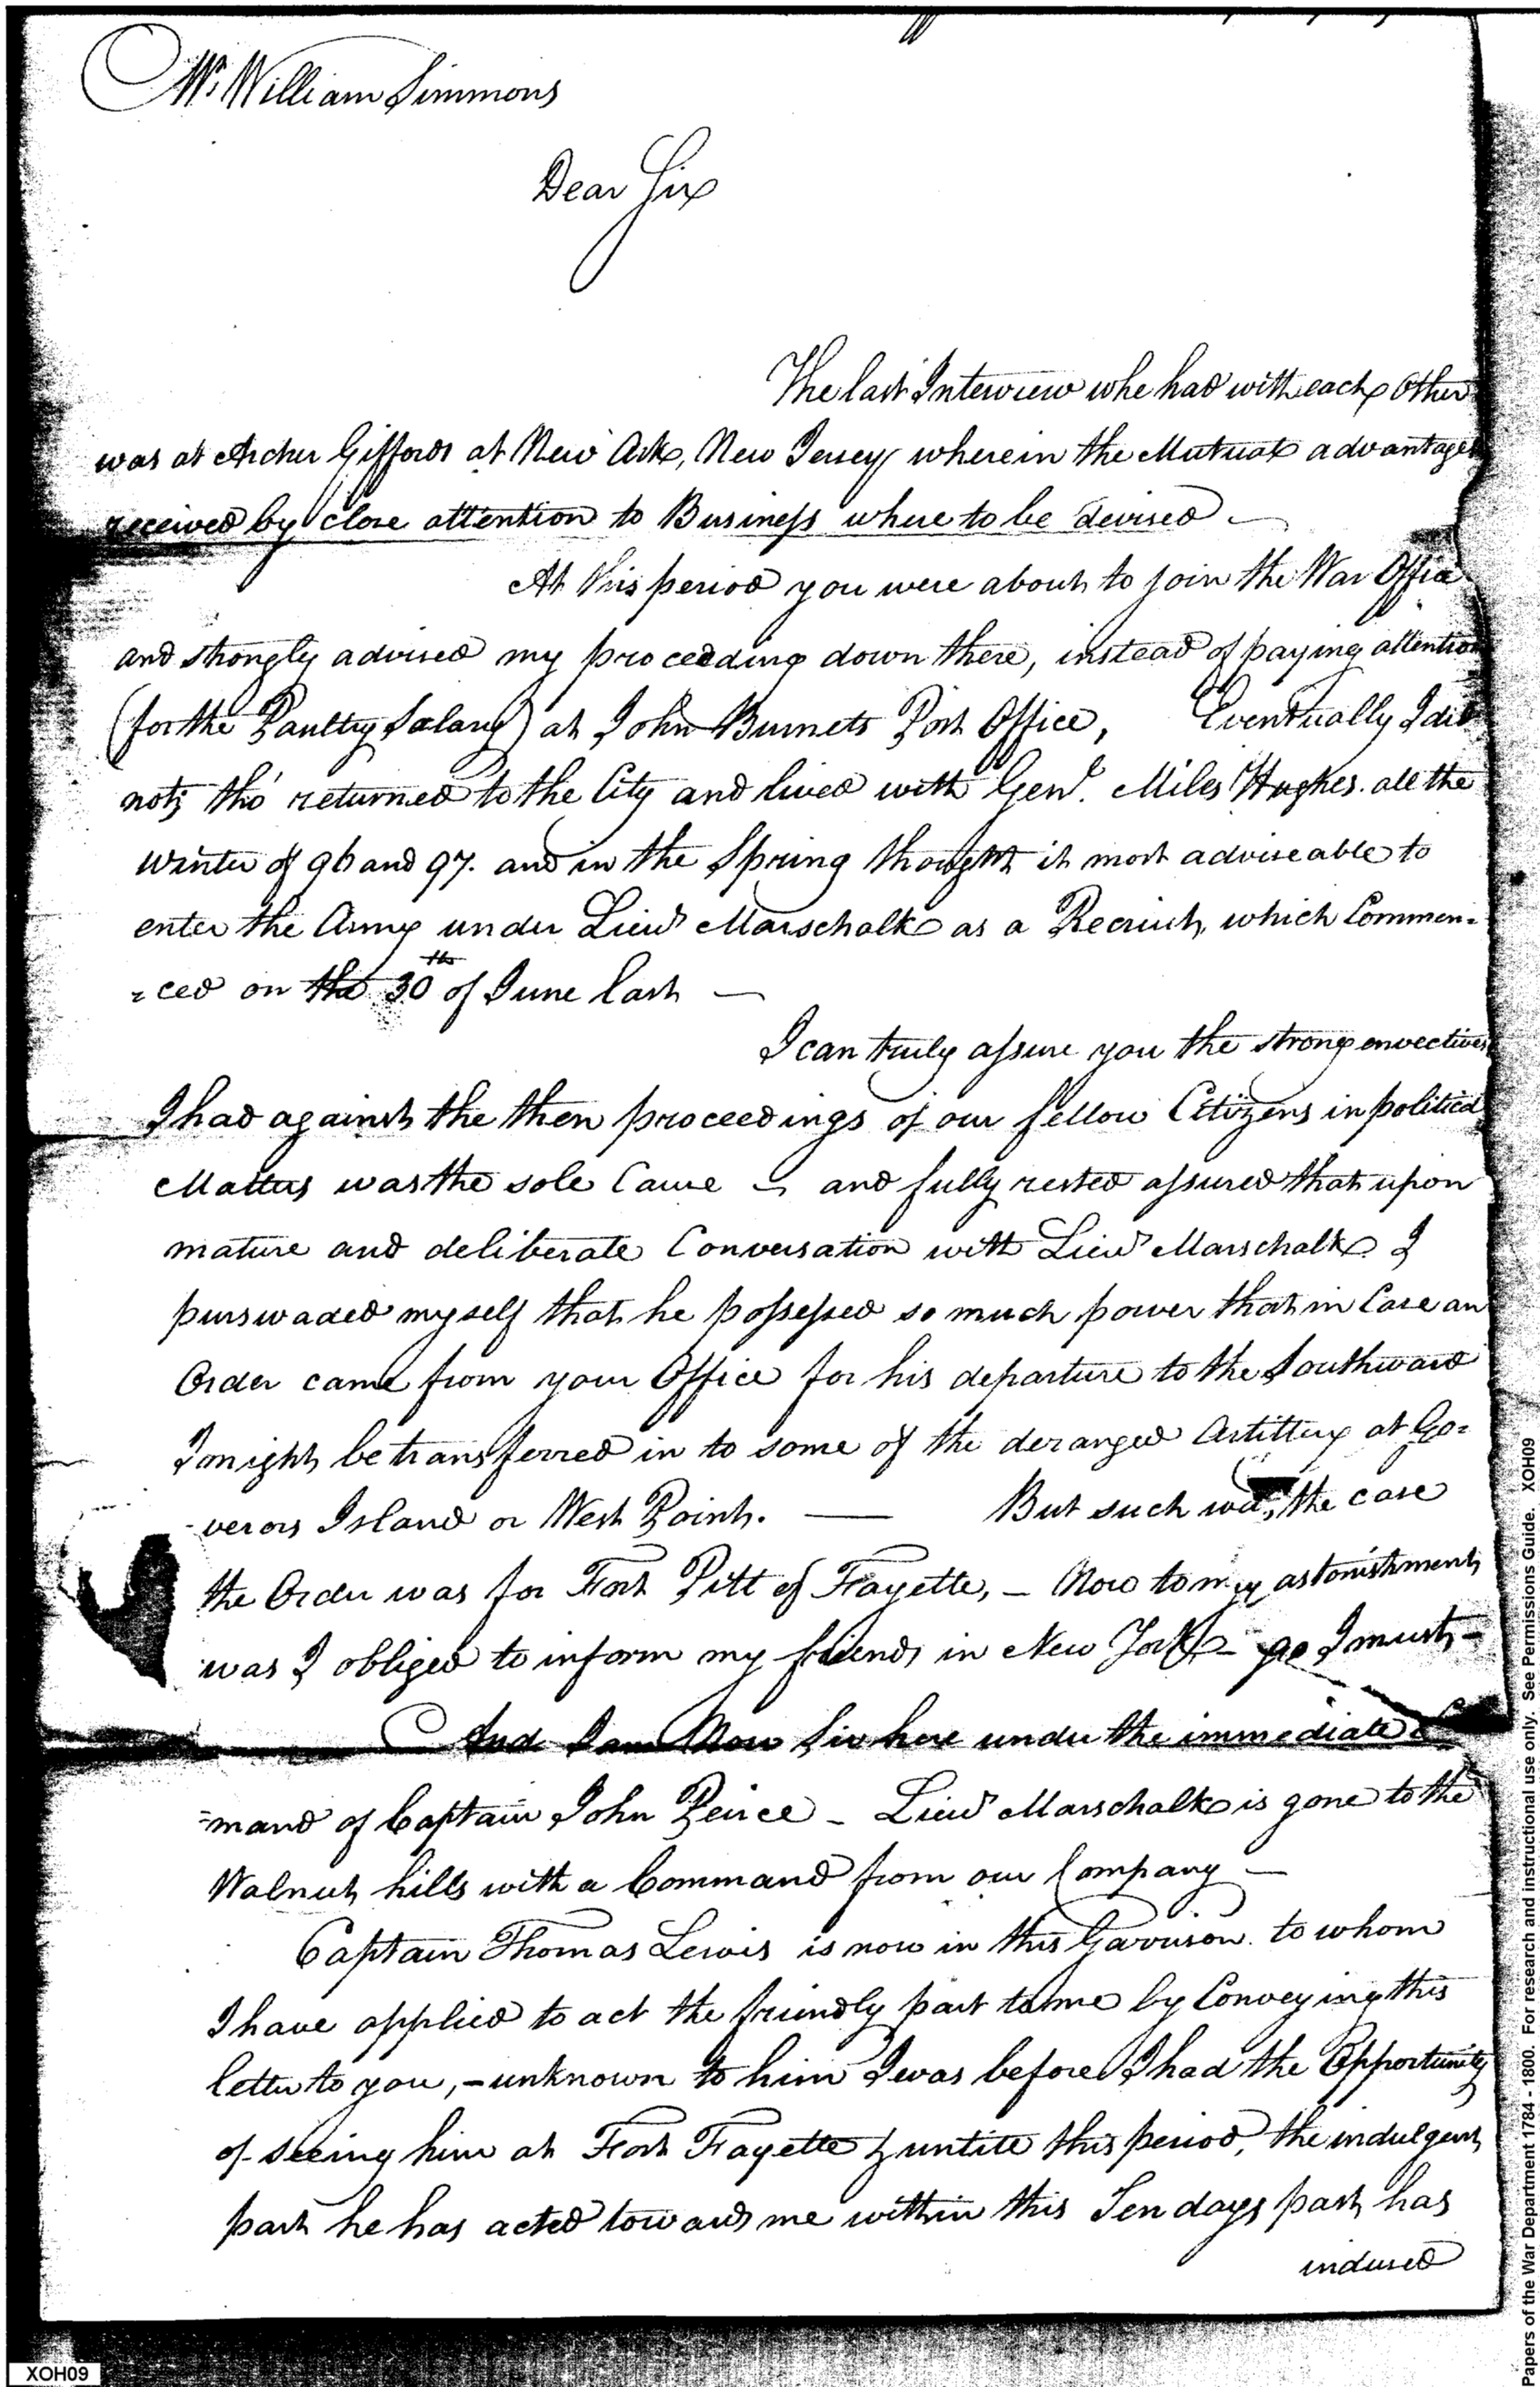 Mr. William Simmons
Dear Sir
The last Interview whe had with each Other
was at Archer Giffords at New Ark, New Jersey wherein the Mutual advantages
received by close attention to Business where to be devised —
At this period you were about to join the War Office
and strongly advised my proceeding down there, instead of paying attention
(for the Paultry Salary) at John Burnets Post Office, Eventually I did
not; tho' returned to the City and lived with Genl. Miles Hughes. all the
winter of 96 and 97. and in the Spring thought it most adviseable to
enter the Army under Lieut Marschalk as a Recruit, which Commen=
=ced on the 30th of June last —
I can truly assure you the strong envectives
I had against the then proceedings of our fellow Citizens in political
Matters was the sole Cause — and fully rested assured that upon
mature and deliberate Conversation with Lieut Marschalk I
purswaded myself that he possessed so much power that in Case an
Order came from your Office for his departure to the Southward
I might be transferred in to some of the deranged Artillery at Go=
=verors Island or West Point. — But such was, the case
the Order was for Fort Pitt of Fayette, — Now to my astonishment,
was I obliged to inform my friends in New York — go I must, —
And I am Now Sir here under the immediate
=mand of Captain John Peirce — Lieut Marschalk is gone to the
Walnut hills with a Command from our Company —
Captain Thomas Lewis is now in this Garrison. to whom
I have applied to act the friendly part to me by Conveying this
letter to you, — unknown to him I was before I had the Opportunity
of seeing him at Fort Fayette & untill this period, the indulgent
part he has acted towards me within this Ten days past, has
indused
XOH09
Papers of the War Department 1784 - 1800. For research and instructional use only. See Permissions Guide. XOH09